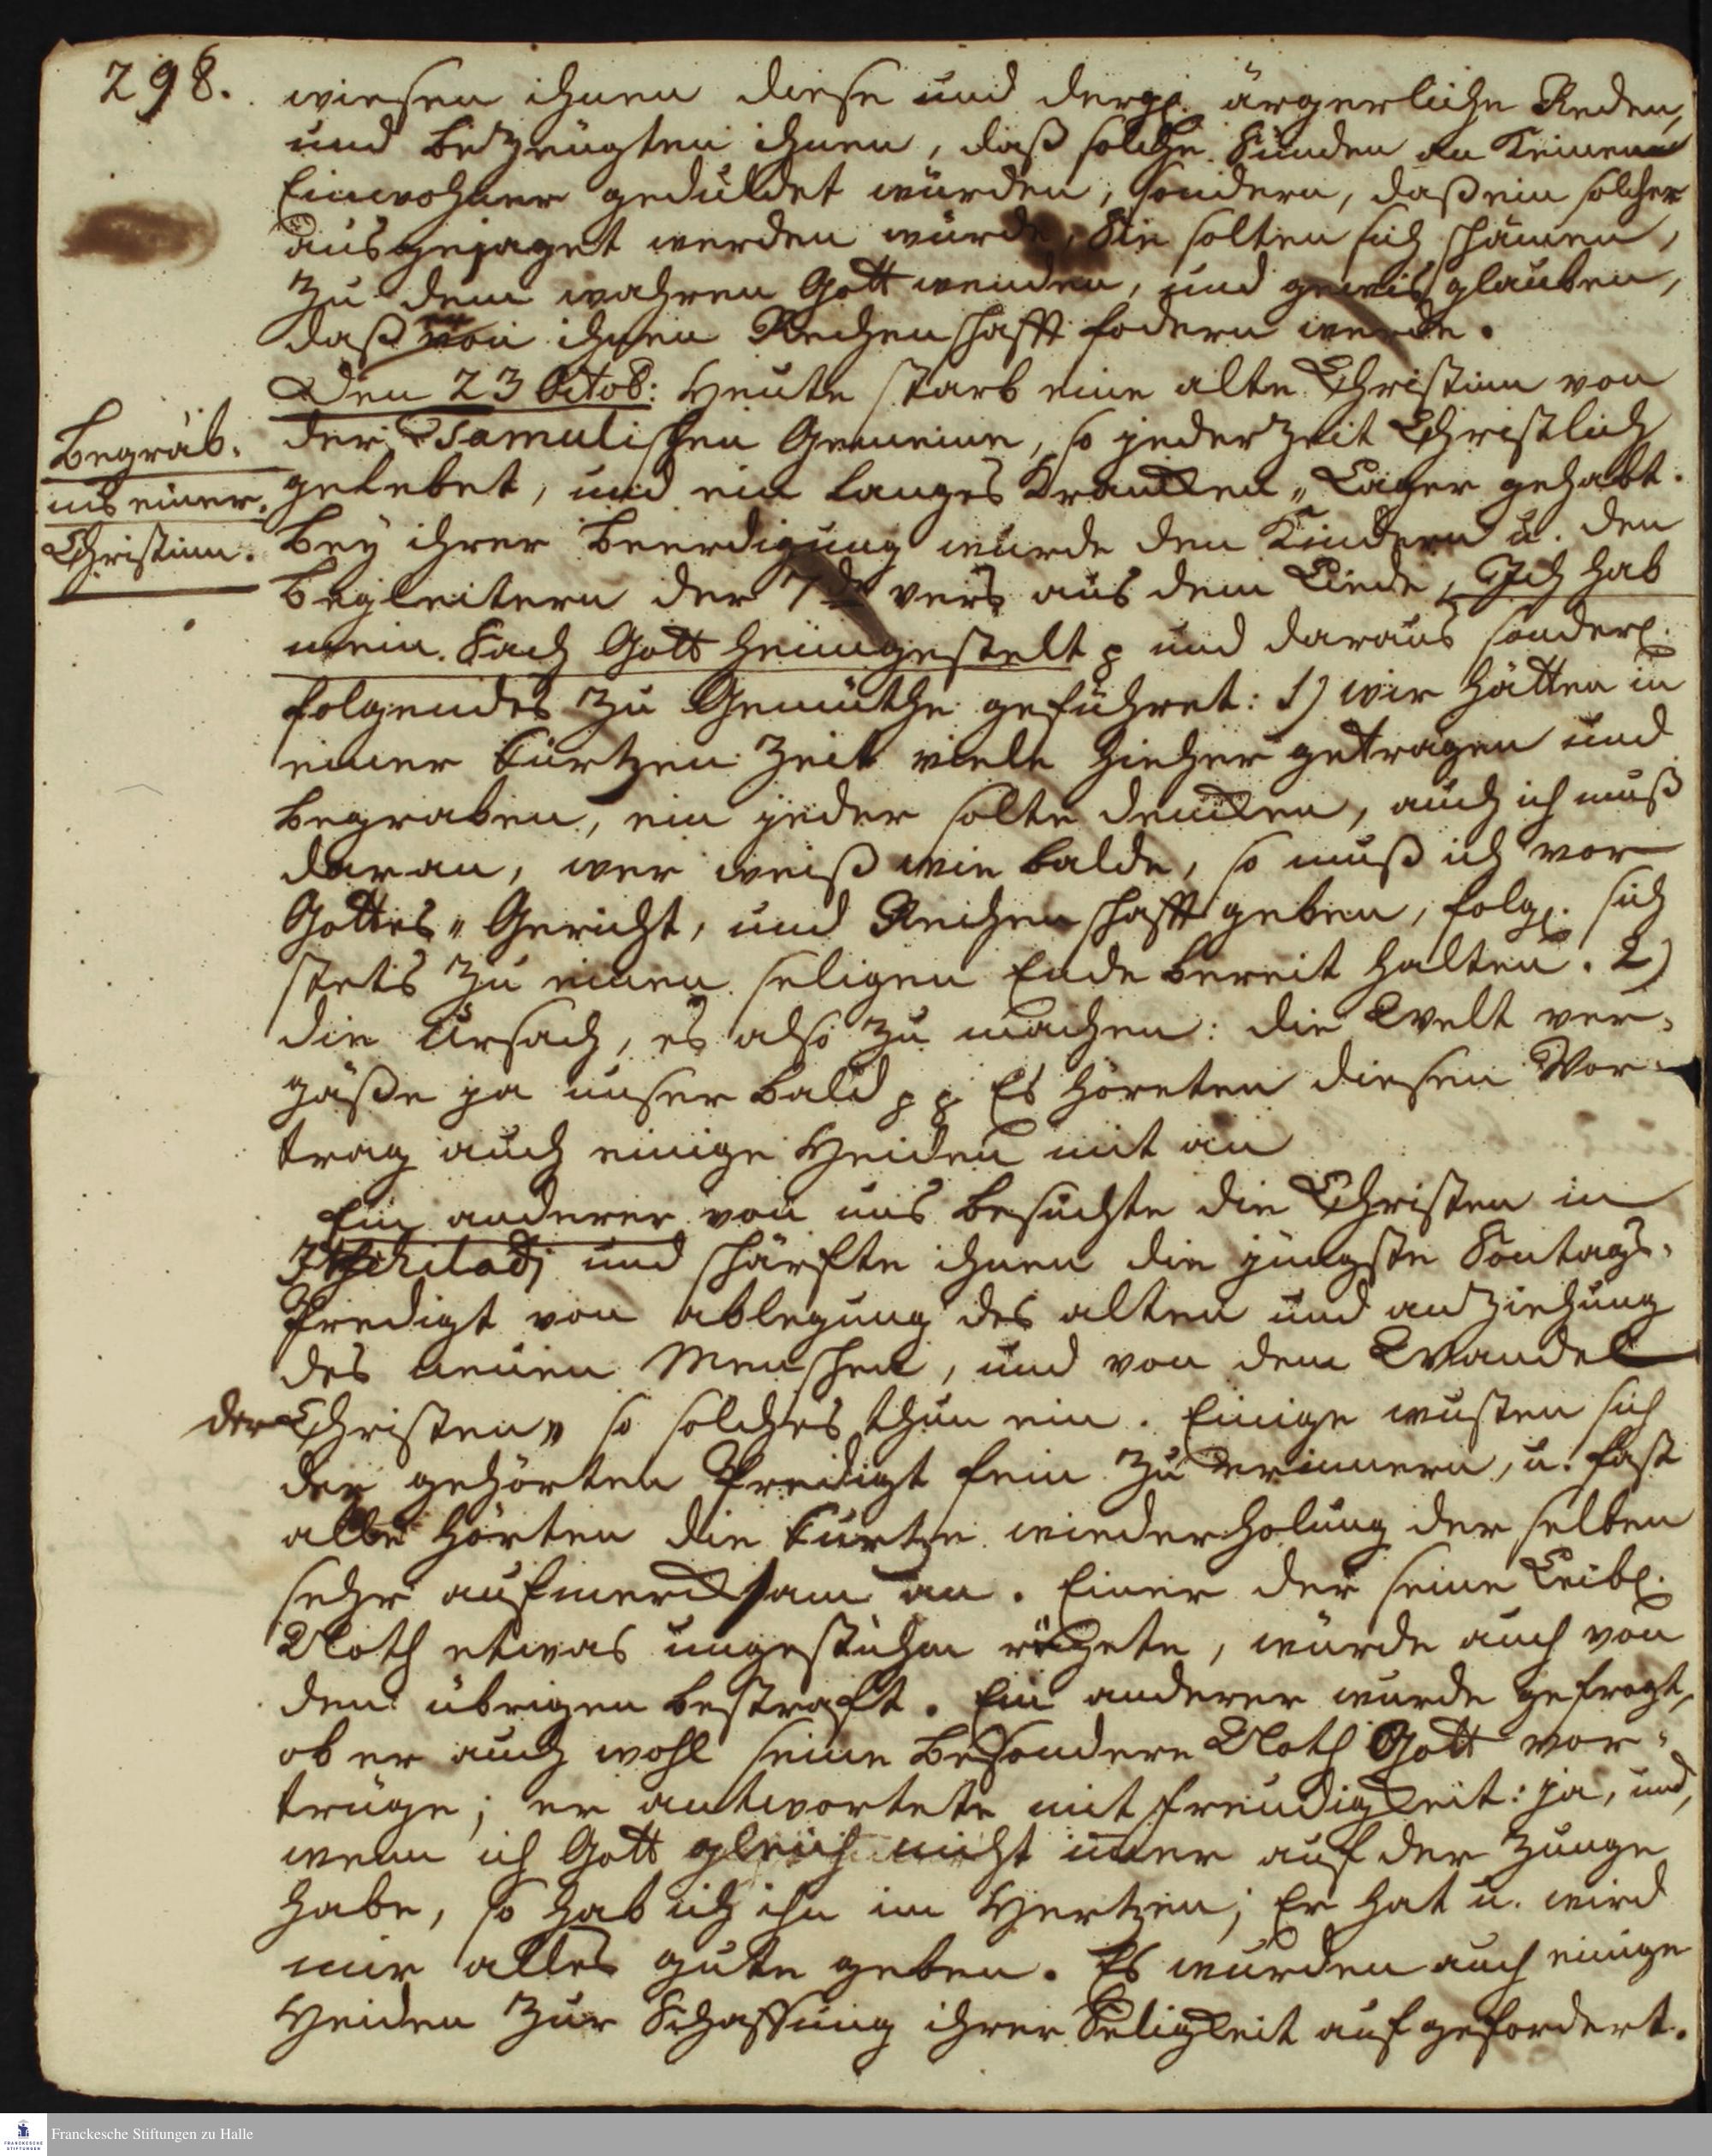 298.
wiesen ihnen diese und dergl. ärgerliche Reden,
und bezeugten ihnen, daß solche Sünden an keinem
Einwohner geduldet würden, sondern, daß ein solcher
ausgejaget werden würde, Sie solten sich schämen,
zu dem wahren Gott wenden, und gewis glauben,
daß von ihnen Rechenschafft fodern werde.
Den 23 Octob: Heute starb eine alte Christinn von
der Tamulischen Gemeine, so jederzeit Christlich
gelebet, und ein langes Krancken„Lager gehabt.
Begräb-
nis einer
Christinn.
Bey ihrer Beerdigung wurde den Kindern u. den
Begleitern der 7de vers aus dem Liede, Ich hab
mein Sach Gott heimgestelt p und daraus sonderl.
folgendes zu Gemüthe geführet: 1) wir hätten in
einer kurtzen Zeit viele hieher getragen und
begraben, ein jeder solte dencken, auch ich muß
daran, wer weiß wie balde, so muß ich vor
Gottes„Gericht, und Rechenschafft geben, folgl. sich
stets zu einen seligen Ende bereit halten. 2)
die Ursach, es also zu machen: die Welt ver-
gäße ja unser bald p p. Es höreten diesen Vor-
trag auch einige Heiden mit an
Ein anderer von uns besuchte die Christen in
und schärfte ihnen die jüngste Sontags-
Predigt von ablegung des alten und anziehung
des neuen Menschen, und von dem Wandel
der Christen„ so solches thun ein. Einige wusten sich
der gehörten Predigt fein zu erinnern, u. fast
alle hörten die kurtze wiederholung der selben
sehr aufmercksam an. Einer der seine Leibl.
Noth etwas ungestühm , wurde auch von
den übrigen bestraft. Ein anderer wurde gefragt,
ob er auch wohl seine besondere Noth Gott vor-
trüge; er antwortete mit freudigkeit: ja, und,
wenn ich Gott gleich nicht imer auf der Zunge
habe, so hab ich ihn im Hertzen; Er hat u. wird
mir alles gute geben. Es wurden auch einige
Heiden zur Schaffung ihrer Seligkeit aufgefordert.
Franckesche Stiftungen zu Halle